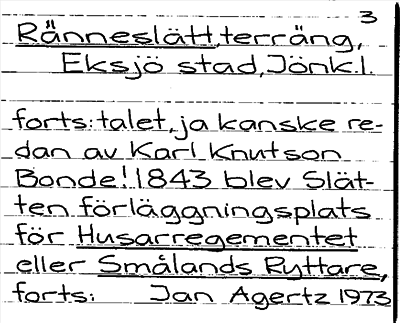 3
Ränneslätt, terräng,
Eksjö stad, Jönk.l.
forts: talet, ja kanske re-
dan av Karl Knutson
Bonde! 1843 blev Slät-
ten förläggningsplats
för Husarregementet
eller Smålands Ryttare,
forts: Jan Agertz 1973